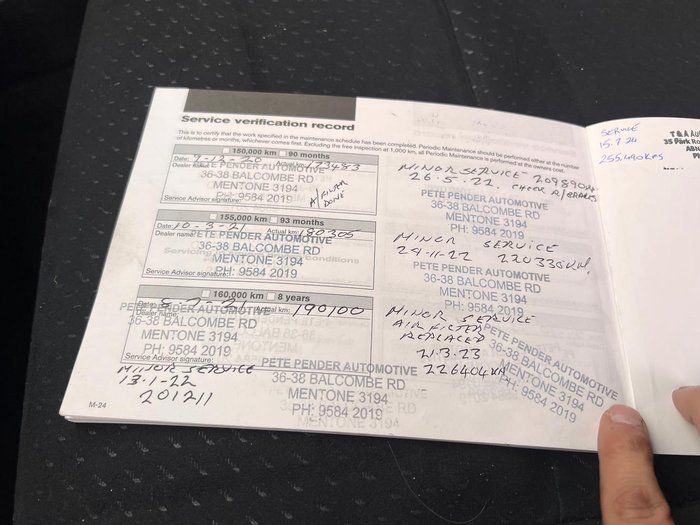 Service verification record
This is to certify that the work specified in the maintenance schedule has been completed. Periodic Maintenance should be performed either at the number
of kilometres or months, whichever comes first. Excluding the free inspection at 1,000 km, all Periodic Maintenance is performed at the owners cost.
150,000 km 90 months
Date: 7-12-20 Actual km: 173483
Dealer
36-38 BALCOMBE RD
MENTONE 3194
PH: 9584 2019
Service Advisor signature:
A/FILTER
DONE
155,000 km 93 months
Date: 10-3-21 Actual km: 180305
Dealer name: PETE PENDER AUTOMOTIVE
36-38 BALCOMBE RD
MENTONE 3194
PH: 9584 2019
Service Advisor signature:
160,000 km 8 years
Date: 8-7-21 Actual km: 190100
PETE PENDER AUTOMOTIVE
36-38 BALCOMBE RD
MENTONE 3194
PH: 9584 2019
Service Advisor signature:
MINOR SERVICE
13-1-22
201211
PETE PENDER AUTOMOTIVE
36-38 BALCOMBE RD
MENTONE 3194
PH: 9584 2019
MENTONE 3194
M-24
MINOR SERVICE 209890KM
26.5.22. CHECK R/BRAKES
PETE PENDER AUTOMOTIVE
36-38 BALCOMBE RD
MENTONE 3194
PH: 9584 2019
MINOR SERVICE
29-11-22 220330KM.
PETE PENDER AUTOMOTIVE
36-38 BALCOMBE RD
MENTONE 3194
PH: 9584 2019
MINOR SERVICE
AIR FILTER
REPLACED
21.3.23
226404KM
PETE PENDER AUTOMOTIVE
36-38 BALCOMBE RD
MENTONE 3194
PH: 9584 2019
SERVICE
15.7.24
255490KMS
T & A AU
35 Park Ro
ABN